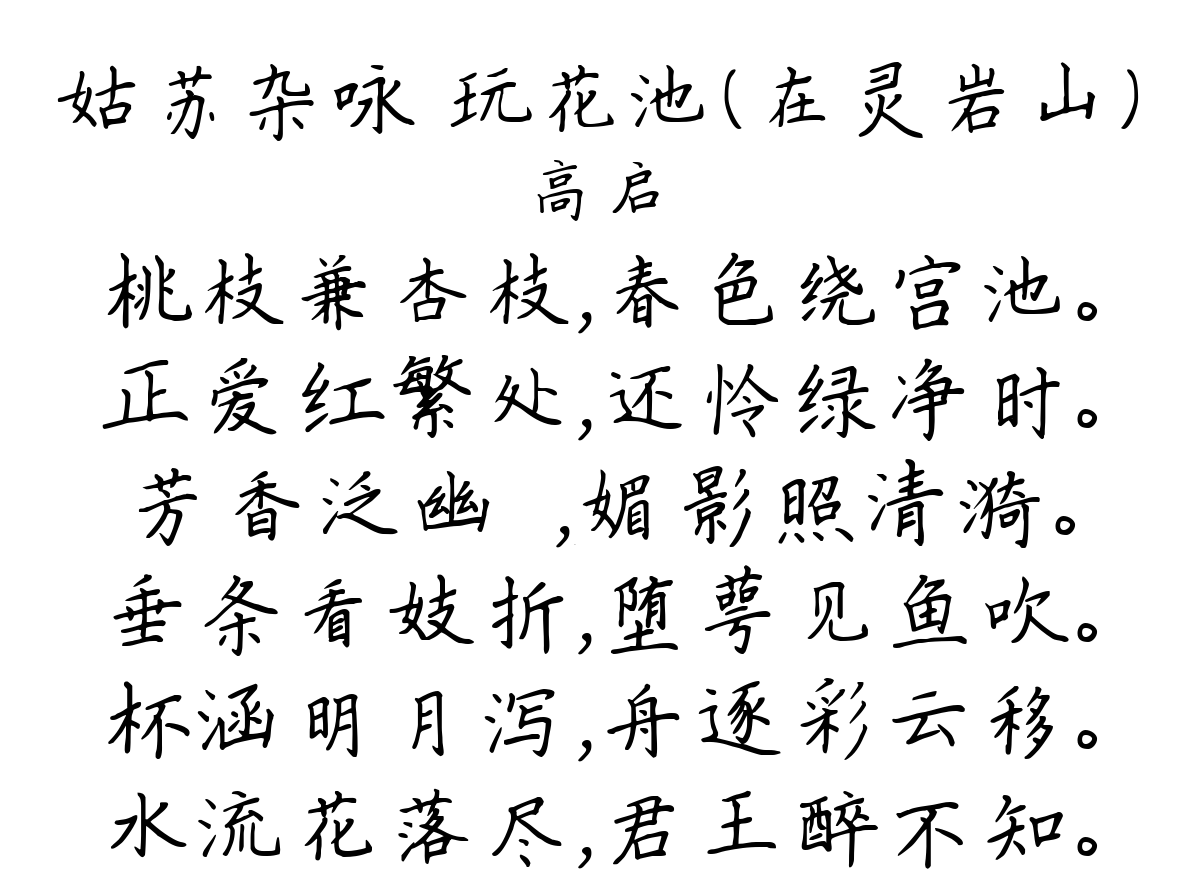 姑苏杂咏 玩花池(在灵岩山)
高启
桃枝兼杏枝,春色绕宫池。
正爱红繁处,还怜绿净时。
芳香泛幽 ,媚影照清漪。
垂条看妓折,堕萼见鱼吹。
杯涵明月泻,舟逐彩云移。
水流花落尽,君王醉不知。